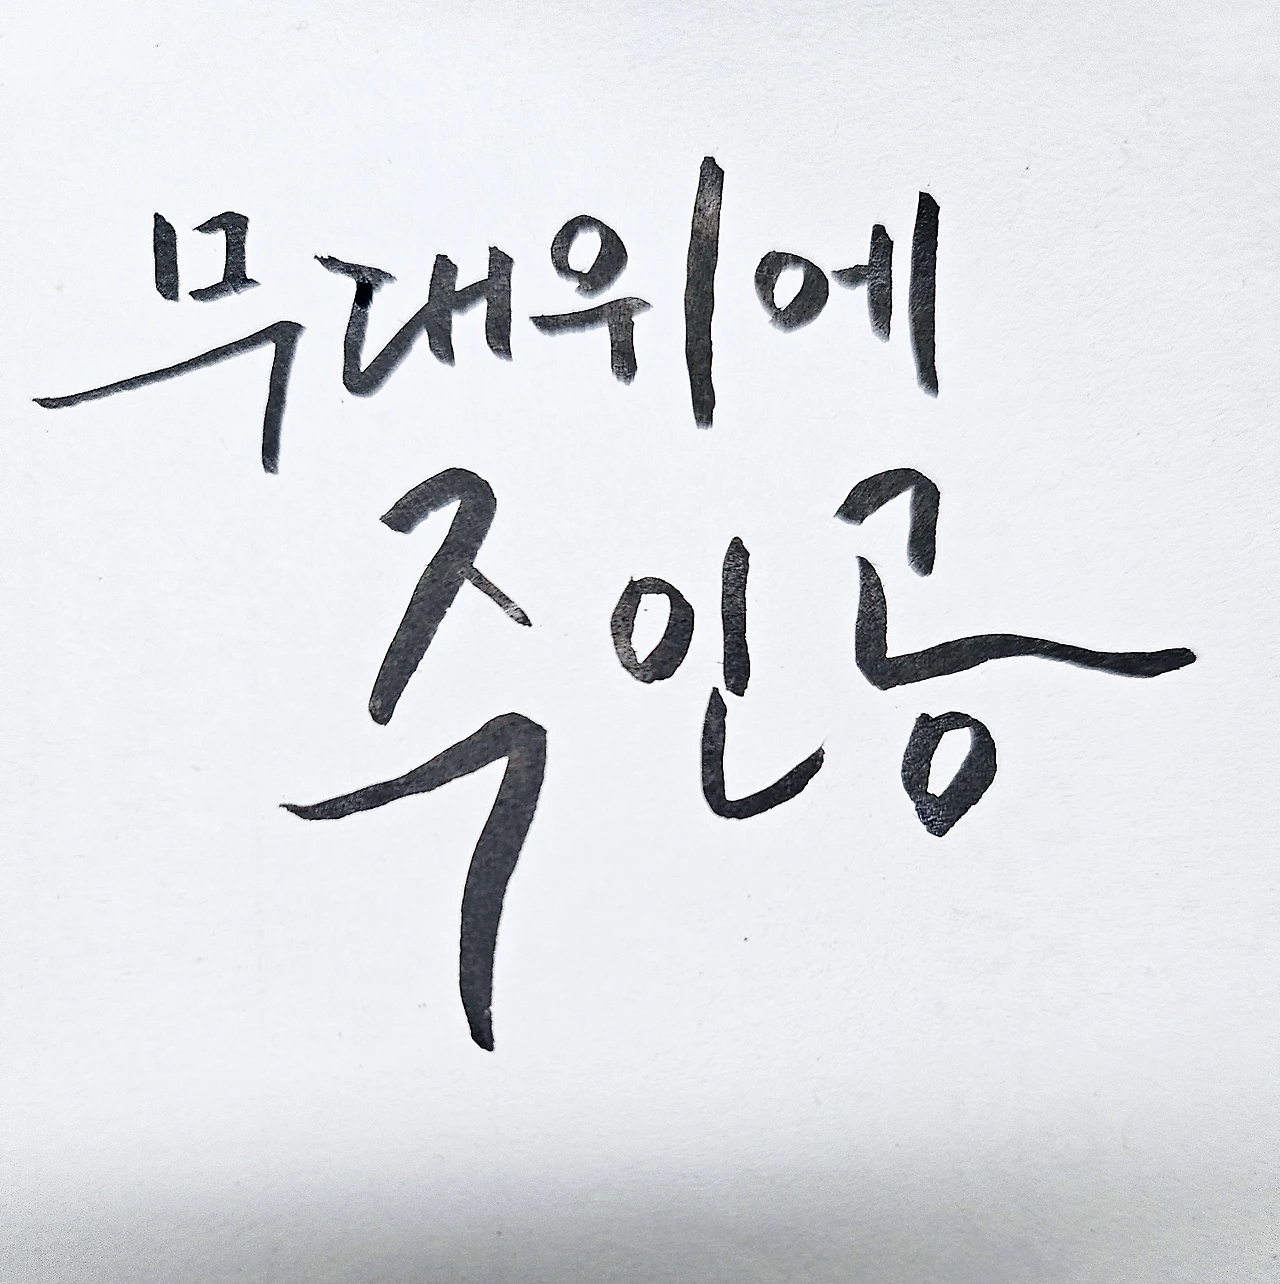 무대위에
주인공